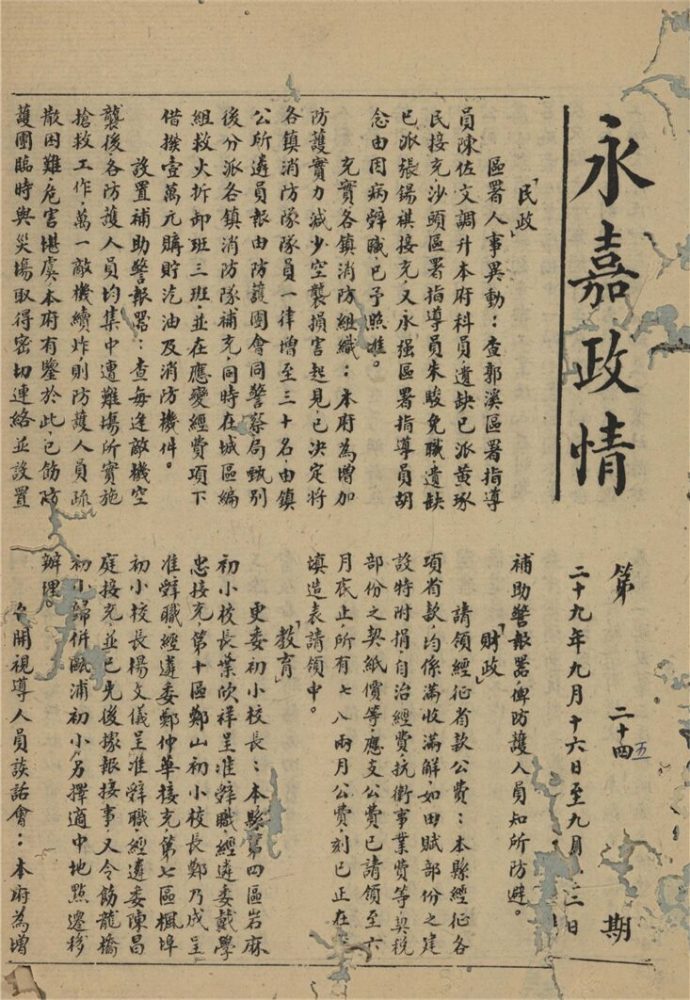 永嘉政情
第二十四五期
二十九年九月十六日至九月二日
「民政」
區署人事異動：查郭溪區署指導
員陳佐文調升本府科員遺缺已派黄琢
民接充沙頭區署指導員朱駿免職遺缺
已派張錫祺接充又永强區署指導員胡
念由因病辭職已予照准。
充實各鎮消防組織：本府為增加
防護實力減少空襲損害起見已决定將
各鎮消防隊隊員一律增至三十名由鎮
公所遴員報由防護團會同警察局甄别
後分派各鎮消防隊補充同時在城區編
組救火拆卸班三班並在應變經費項下
借撥壹萬元購貯汽油及消防機件。
設置補助警報器：查每逢敵機空
襲後各防護人員均集中遭難塲所實施
搶救工作萬一敵機續炸則防護人員疏
散困難危害堪虞本府有鑒於此已飭防
護團臨時與災塲取得密切連絡並設置
補助警報器俾防護人員知所防避。
「財政」
請領經征省款公費：本縣經征各
項省款均係滿收滿解如田賦部份之建
設特附捐自治經費抗衛事業費等契税
部份之契紙價等應支公費已請領至六
月底止所有七八兩月公費刻已正在
填造表請領中。
「教育」
更委初小校長：本縣第四區岩麻
初小校長葉欣祥呈准辭職經遴委戴學
忠接充第十區鄭山初小校長鄭乃成呈
准辭職經遴委鄭仲華接充第七區楓埠
初小校長楊文儀呈准辭職經遴委陳昌
庭接充並已先後據報接事又令飭龍橋
初小歸併甌浦初小另擇適中地點遷移
辦理。
開視導人員談話會：本府為增